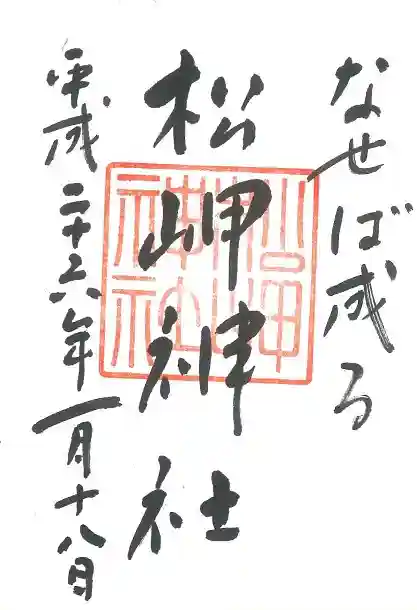 なせば成る
松岬神社
平成二十六年一月十八日
松岬神社